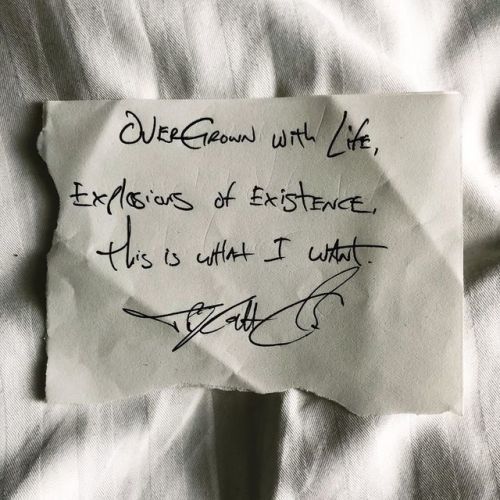 OverGrown with Life,
Explosions of Existence,
this is what I want.